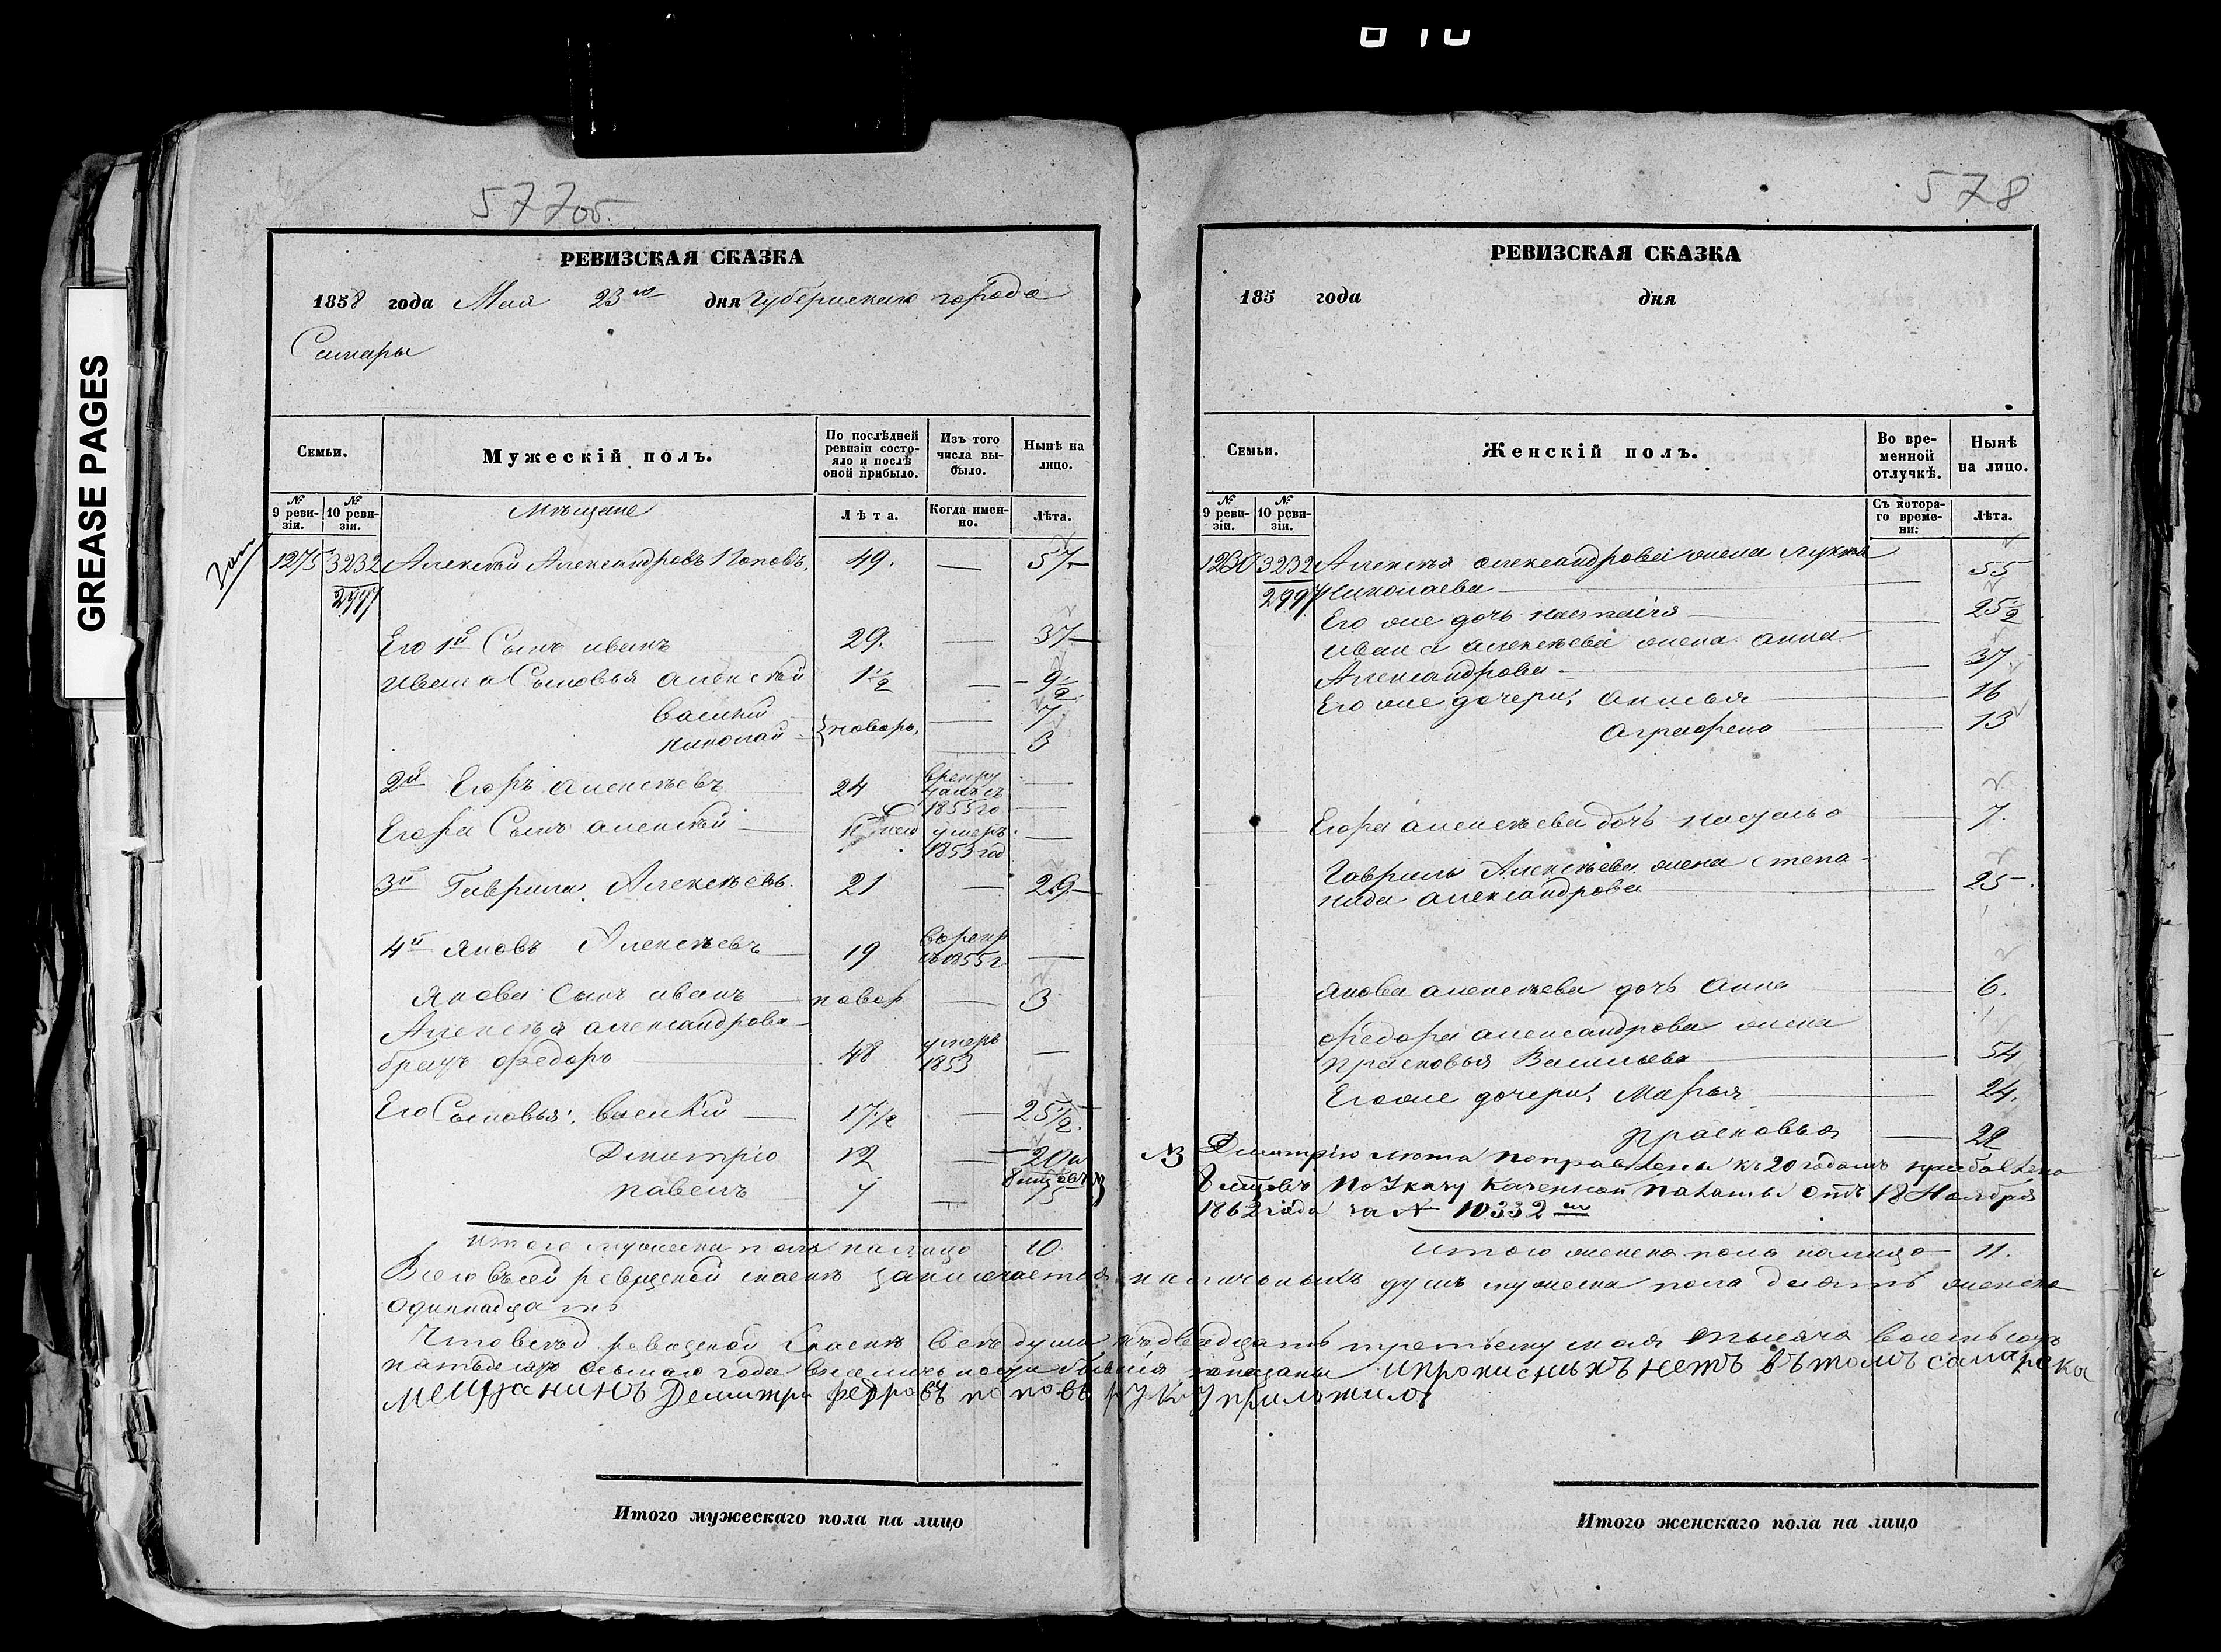 GREASE PAGES
577об
РЕВИЗСКАЯ СКАЗКА
1858 года Мая 23го дня Губернскаго города
Самары
Семьи.
Мужескій полъ.
По послѣдней ревизіи состояло и послѣ оной прибыло.
Изъ того числа выбыло.
Нынѣ на лицо.
№ 9 ревизіи.
№ 10 ревизіи.
Мѣщане
Лѣта.
Когда именно.
Лѣта.
1275 3232 Алексѣй Александровъ Поповъ. 49. — 57—
2997
Его 1й Сынъ иванъ 29. — 37—
ивана Сыновья алексѣй 1 1/2 — 9 1/2
василий 7
николай новоро. 3
2й Егоръ алексѣевъ 24 1855го —
Егора Сынъ алексѣй умеръ 1853 год —
3й Гаврила Алексѣевъ. 21 — 29.—
4й яковъ Алексѣевъ 19 1855г —
якова сынъ иванъ новор — 3
Алексѣя александрова
братъ федоръ 48 умеръ 1853 —
Его Сыновья: василий 17 1/2 — 25 1/2
Дмитрiй 12 — 20 и
8 мцовъ
павелъ 7 — 15
итого мужеска пола налицо 10
578
РЕВИЗСКАЯ СКАЗКА
185 года дня
Семьи.
Женскій полъ.
Во временной отлучкѣ.
Нынѣ на лицо.
№ 9 ревизіи.
№ 10 ревизіи.
Съ котораго времени:
Лѣта.
3232 Алексѣя александрова жена
2997 николаева 55
Его же дочь настасiя 25 1/2
ивана алексѣева жена анна
Александрова 37
Его же дочери: 16
аграфена 13
Егора алексѣева дочь 7.
Гаврилы Алексѣева жена степа-
нида александрова 25
якова алексѣева дочь анна 6.
федора александрова жена
прасковья Васильева 54
Его же дочери: Марья 24.
прасковья 22
NB Дмитрiю лета поправлены къ 20 годамъ прибавлено
8 мцовъ по Указу казенной палаты отъ 18 Ноября
1862 года за № 10332м
итого женска пола налицо 11.
Всего въ сей ревизской сказкѣ заключается наличныхъ душъ мужеска пола десять женска
одинадцать
Что въ сей ревизской Сказкѣ всѣ души къ двадцать третьему мая тысяча восемьсотъ
пятьдесятъ осьмаго года показаны и прописныхъ нетъ въ томъ самарска
мещанинъ Демитри федровъ поповъ руку прилжилъ
Итого мужескаго пола на лицо
Итого женскаго пола на лицо